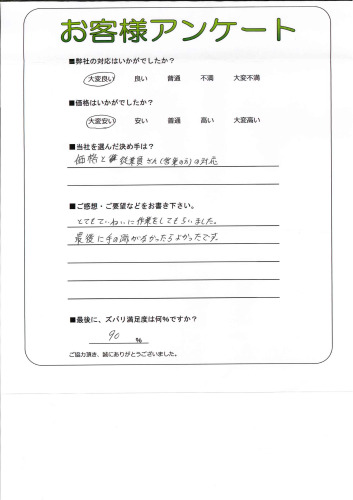 お客様アンケート
■弊社の対応はいかがでしたか？
大変良い 良い 普通 不満 大変不満
■価格はいかがでしたか？
大変安い 安い 普通 高い 大変高い
■当社を選んだ決め手は？
価格と従業員さん(営業の方)の対応
■ご感想・ご要望などをお書き下さい。
とてもていねいに作業をしてもらいました。
最後に手の跡がなかったらよかったです。
■最後に、ズバリ満足度は何%ですか？
90 %
ご協力頂き、誠にありがとうございました。